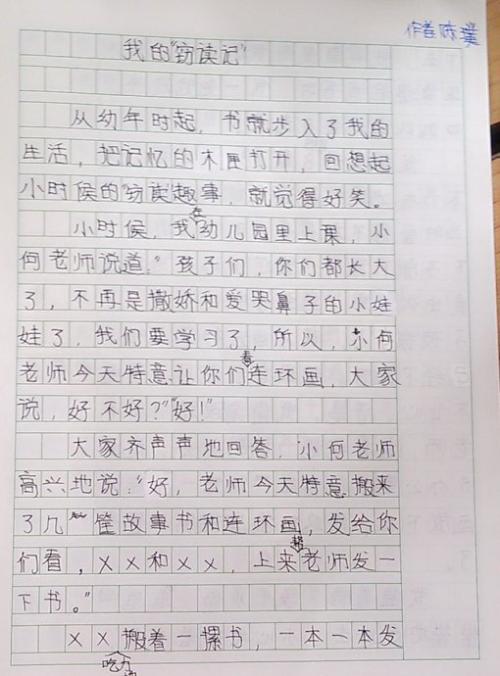 作者陈瑾
我的"窃读记"
从幼年时起，书就步入了我的
生活，把记忆的木匣打开，回想起
小时候的"窃读"趣事，就觉得好笑。
小时候，我在幼儿园里上课，小
何老师说道："孩子们，你们都长大
了，不再是撒娇和爱哭鼻子的小娃
娃了，我们要学习了，所以，小何
老师今天特意让你们看连环画，大家
说，好不好？"好！"
大家齐声声地回答，小何老师
高兴地说："好，老师今天特意搬来
了几筐故事书和连环画，发给你
们看，××和××，上来帮老师发一
下书。"
××吃力搬着一摞书，一本一本发